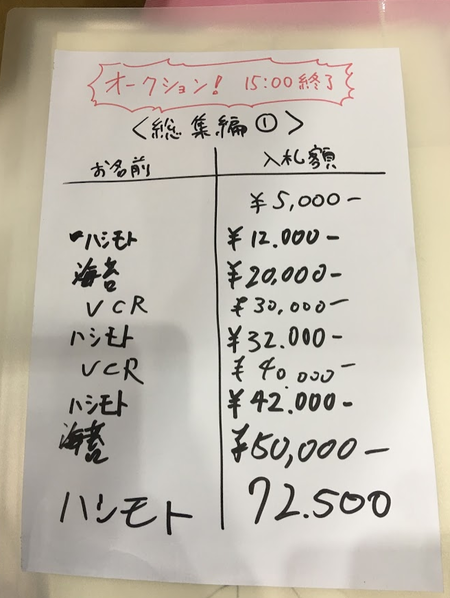 オークション! 15:00終了
<総集編①>
お名前 入札額
¥5,000-
ハシモト ¥12.000-
海苔 ¥20,000-
VCR ¥30,000-
ハシモト ¥32.000-
VCR ¥40.000-
ハシモト ¥42.000-
海苔 ¥50,000-
ハシモト 72.500